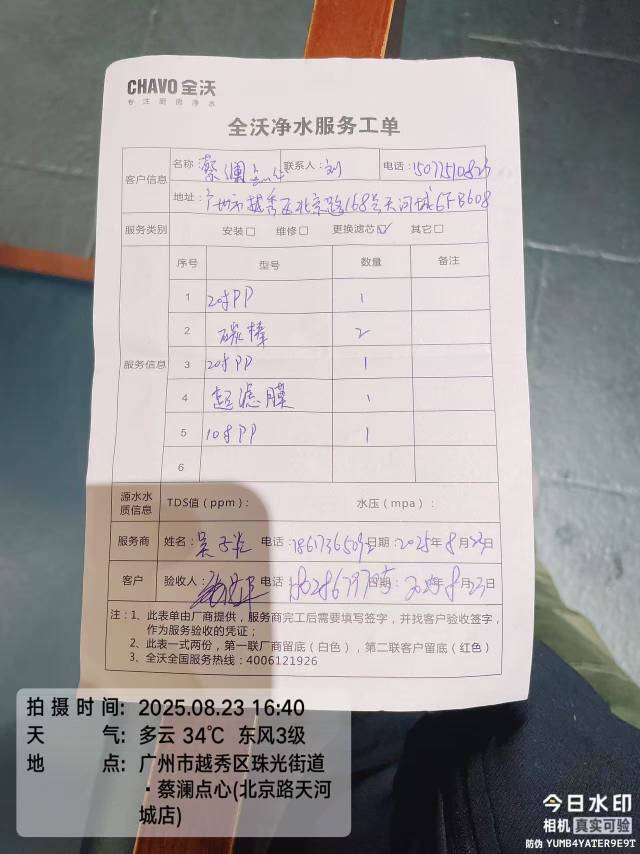 CHAVO 全沃
专注厨房净水
全沃净水服务工单
客户信息 名称: 蔡澜点心 联系人: 刘 电话:
地址: 广州市越秀区北京路168号天河城6FB608
服务类别 安装□ 维修□ 更换滤芯☑ 其它□
服务信息
序号 型号 数量 备注
1 20寸PP 1
2 碳棒 2
3 20寸PP 1
4 超滤膜 1
5 10寸PP 1
6
源水水质信息 TDS值(ppm): 水压(mpa):
服务商 姓名: 电话: 日期: 2025年8月23日
客户 验收人: 电话 日期: 2025年8月23日
注:1、此表单由厂商提供,服务商完工后需要填写签字,并找客户验收签字,
作为服务验收的凭证;
2、此表一式两份,第一联厂商留底(白色),第二联客户留底(红色)
3、全沃全国服务热线:4006121926
拍摄时间: 2025.08.23 16:40
天气: 多云 34℃ 东风3级
地点: 广州市越秀区珠光街道
·蔡澜点心(北京路天河
城店)
今日水印
相机 真实可验
防伪 YUMB4YATER9E9T